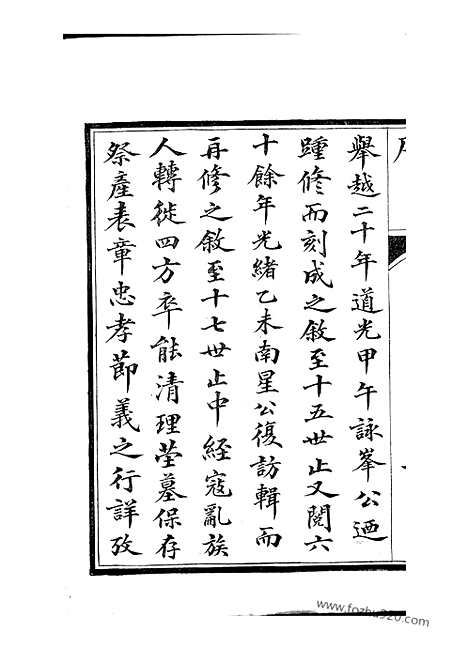 舉越二十年道光甲午詠峯公迺
踵修而刻成之敘至十五世止又閱六
十餘年光緒乙未南星公復訪輯而
再修之敘至十七世止中經寇亂族
人轉徙四方卒能清理塋墓保存
祭產表章忠孝節義之行詳攷
www.fozhu920.com